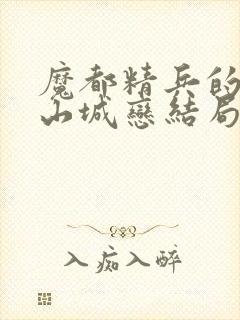 魔都精兵的
山城戀結局
入痴入醉